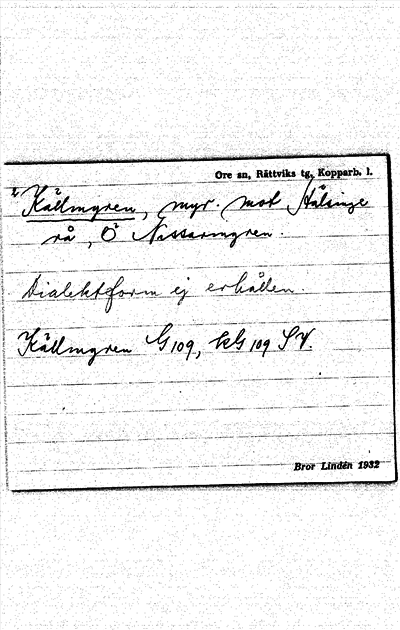 Ore sn, Rättviks tg, Kopparb. l.
Källmyren, myr. mot Hälsinge
rå, Ö Nissarmyren.
Dialektform ej erhållen.
Källmyren G 109, kG 109 SV.
Bror Lindén 1932